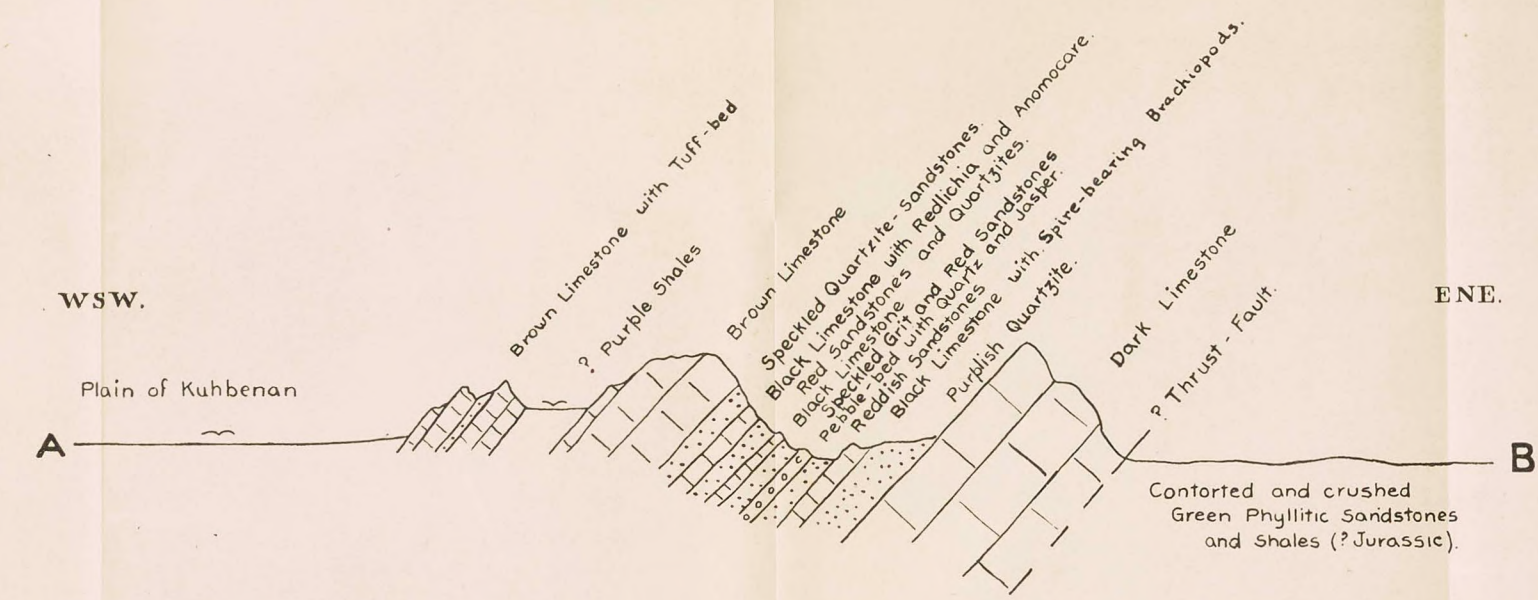 WSW.
ENE.
Plain of Kuhbenan
A
Brown Limestone with Tuff-bed
? Purple Shales
Brown Limestone
Speckled Quartzite-Sandstones.
Black Limestone with Redlichia and Anomocare.
Red Sandstones and Quartzites.
Black Limestone
Speckled Grit and Red Sandstones
Pebble-bed with Quartz and Jasper.
Reddish Sandstones
Black Limestone with Spire-bearing Brachiopods.
Purplish Quartzite.
Dark Limestone
? Thrust-Fault.
B
Contorted and crushed
Green Phyllitic Sandstones
and Shales (? Jurassic).